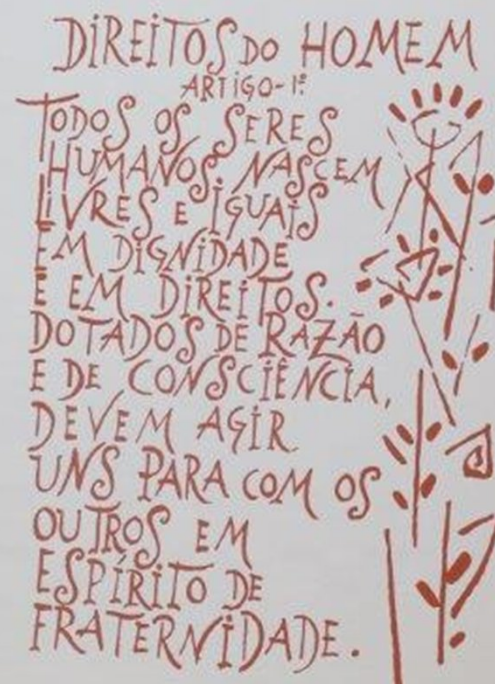 DIREITOS DO HOMEM
ARTIGO-1º
TODOS OS SERES
HUMANOS NASCEM
LIVRES E IGUAIS
EM DIGNIDADE
E EM DIREITOS.
DOTADOS DE RAZÃO
E DE CONSCIÊNCIA,
DEVEM AGIR
UNS PARA COM OS
OUTROS EM
ESPÍRITO DE
FRATERNIDADE.